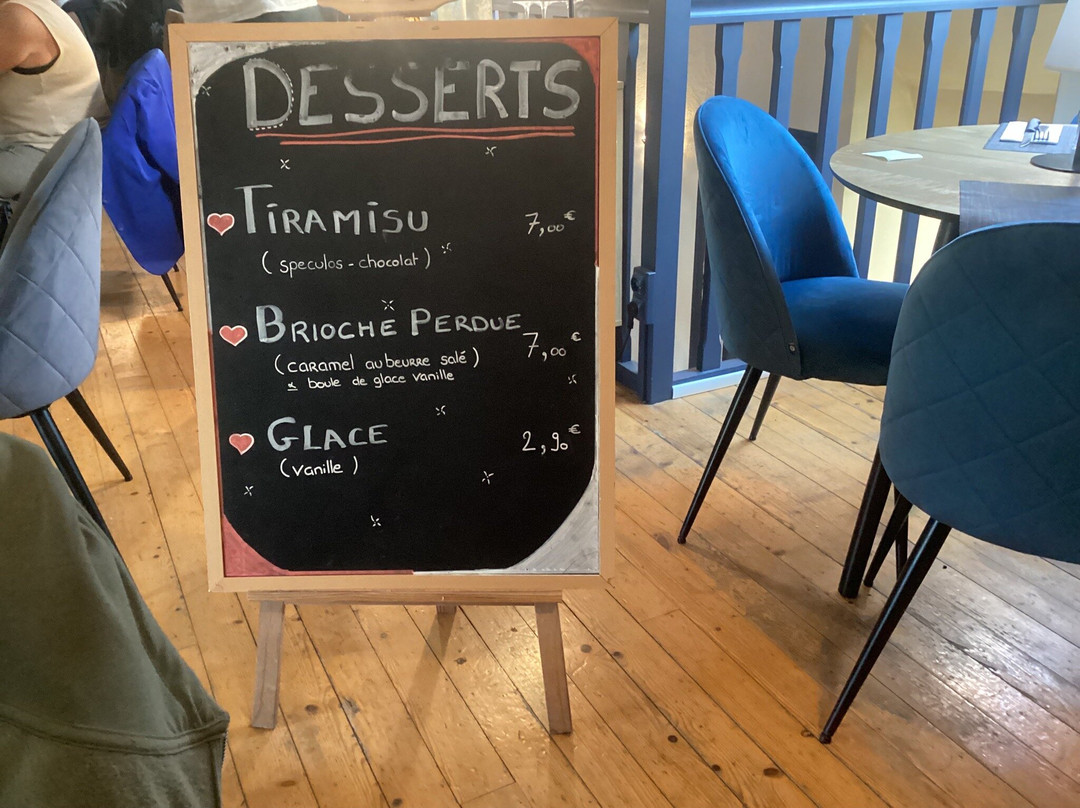 DESSERTS
TiRAMiSU 7,00€
(speculos - chocolat)
BRIOCHE PERDUE 7,00€
(caramel au beurre salé)
+ boule de glace vanille
GLACE 2,90€
(vanille)